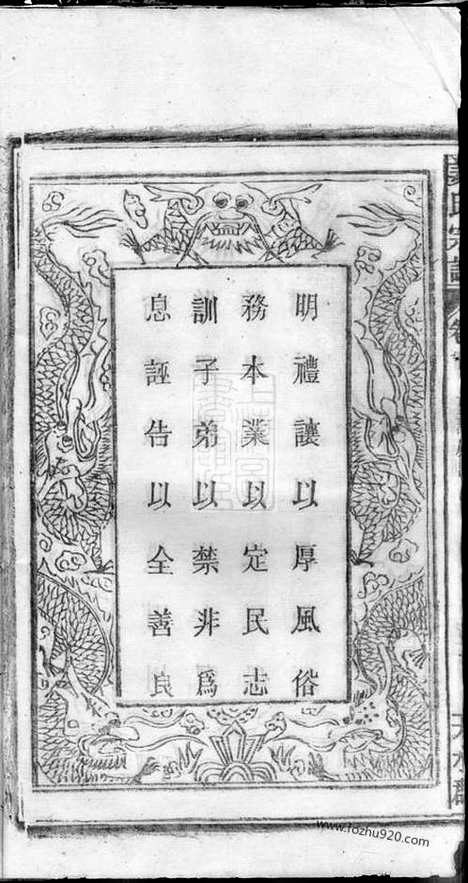 明禮讓以厚風俗
務本業以定民志
訓子弟以禁非為
息誣告以全善良
氏宗譜
www.fozhu920.com